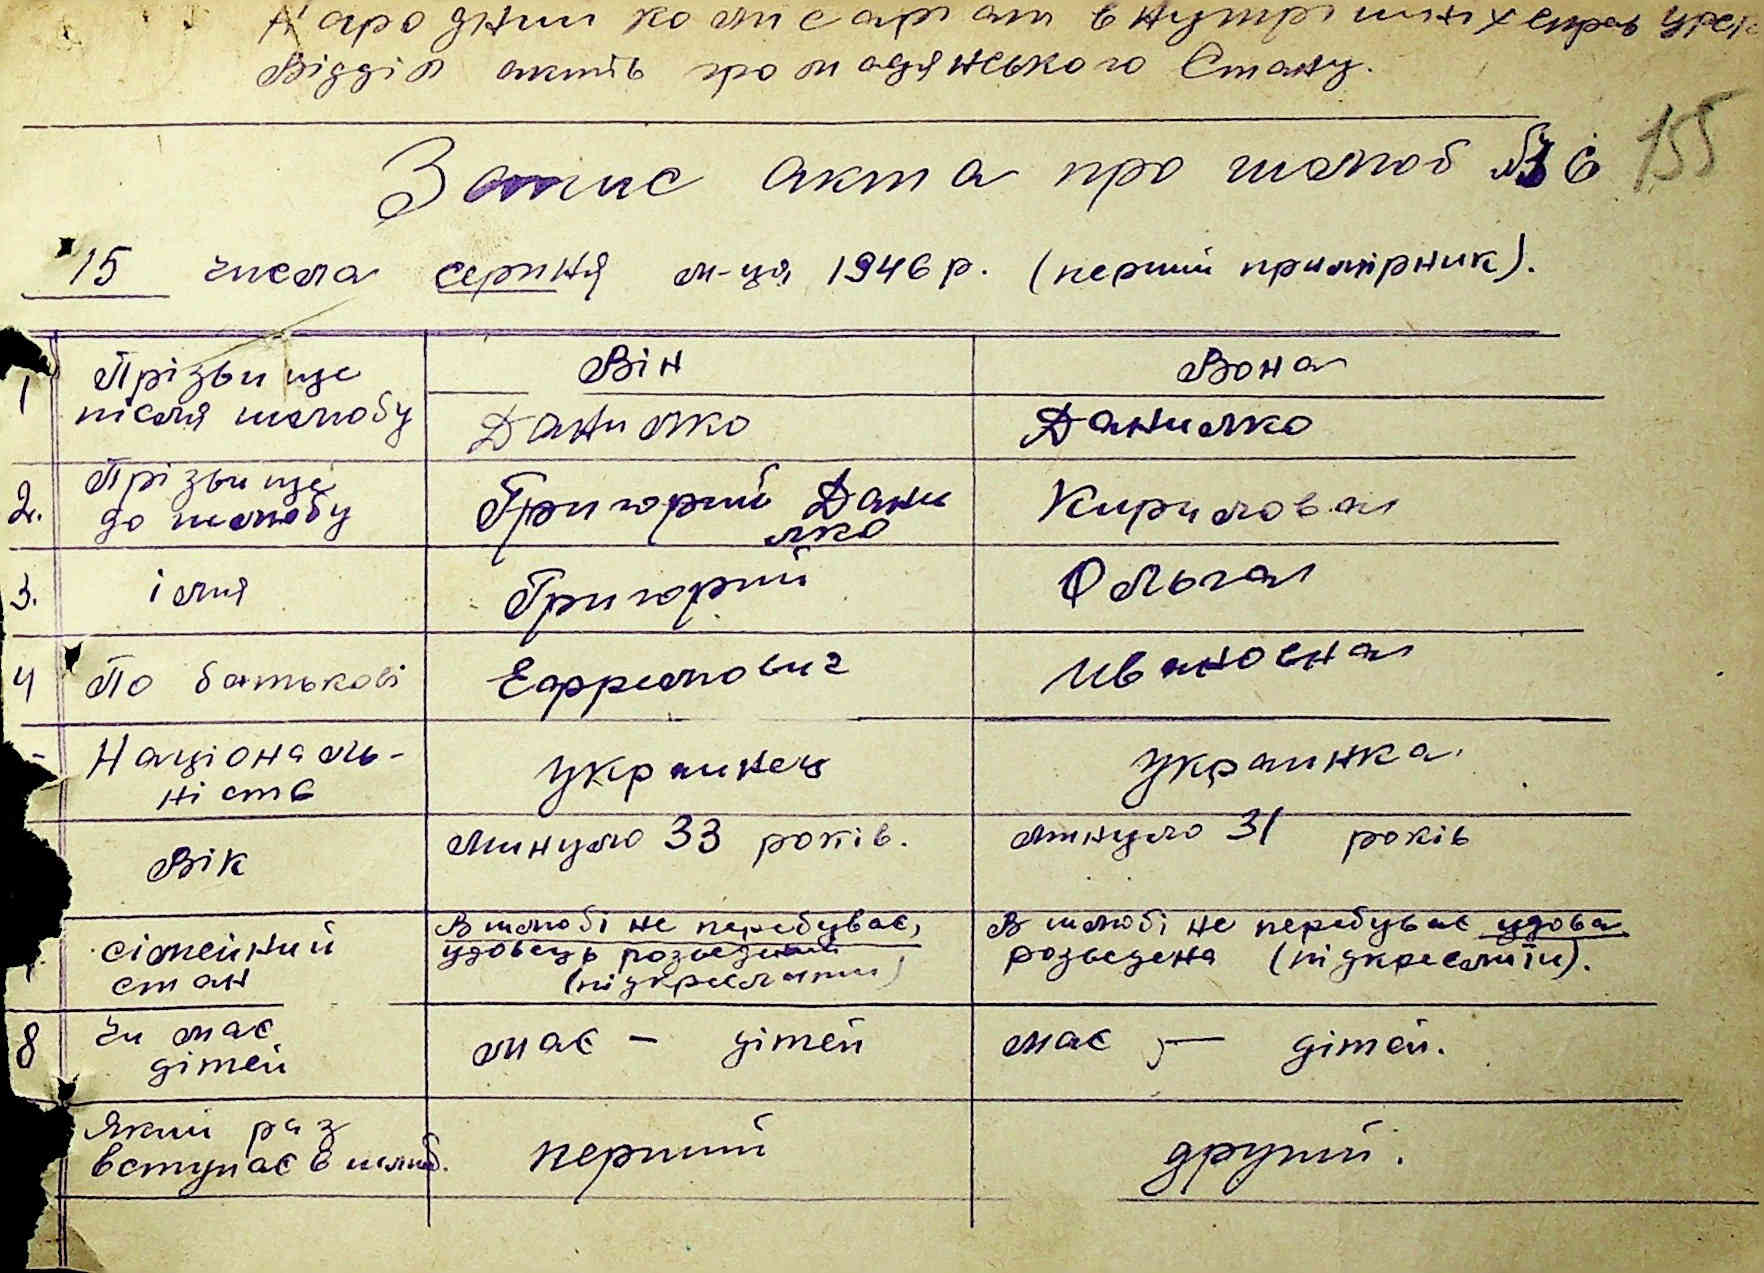 Народний комісаріат внутрішніх справ УРСР
Відділ актів громадянського Стану.
155
Запис акта про шлюб № 6
15 числа серпня м-ця 1946 р. (перший примірник).
1 Прізвище після шлюбу
Він
Вона
Данилко
Данилко
2. Прізвище до шлюбу
Григорий Данилко
Кирилова
3. імя
Григорий
Ольга
4 По батькові
Ефремович
Ивановна
Національність
украинец
украинка.
Вік
минуло 33 років.
минуло 31 років
сімейний стан
В шлюбі не перебуває,
удовець розведений
(підкреслити)
В шлюбі не перебуває удова
розведена (підкреслити).
8 Чи має дітей
має — дітей
має — дітей.
Який раз вступає в шлюб.
перший
другий.